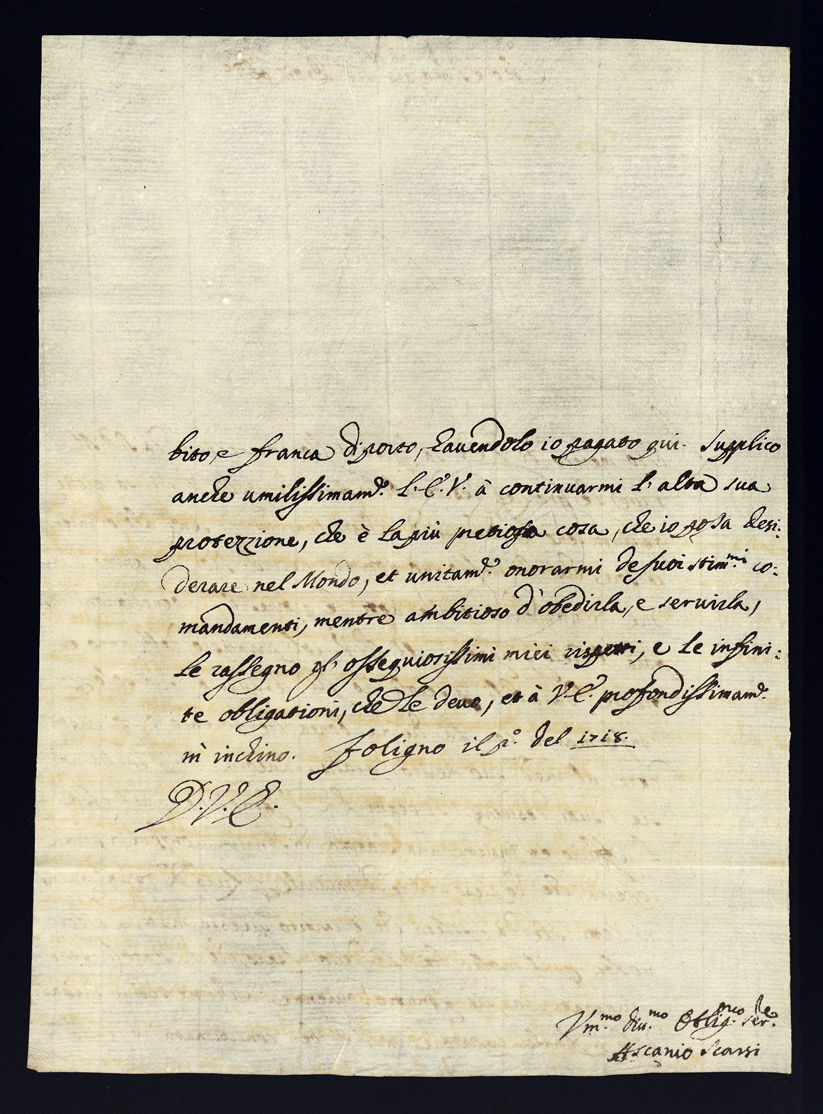 bito, e franca di porto, havendolo io pagato qui. Supplico
anche umilissimam.te L.E.V. à continuarmi l'alta sua
protezzione, che è la più pretiosa cosa, che io possa desi:
derare nel Mondo, et unitam.te onorarmi de suoi stim.mi co:
mandamenti, mentre ambitioso d'obedirla, e servirla,
le rassegno gl' ossequiosissimi miei rispetti, e le infini:
te obligationi, che le devo, et à V.E. profondissimam.te
m'inchino. Foligno il p.o del 1718.
D.V.E.
Um.mo div.mo Oblig.mo ser.re
Ascanio Scarsi